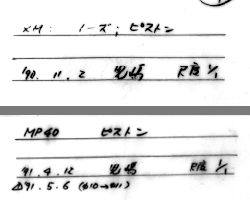 ×M: ノーズ; ピストン
'90. 11. 2 児嶋 尺度 1/1
MP40 ピストン
'91. 4. 12 児嶋 尺度 1/1
△'91. 5. 6 (φ10→φ11)